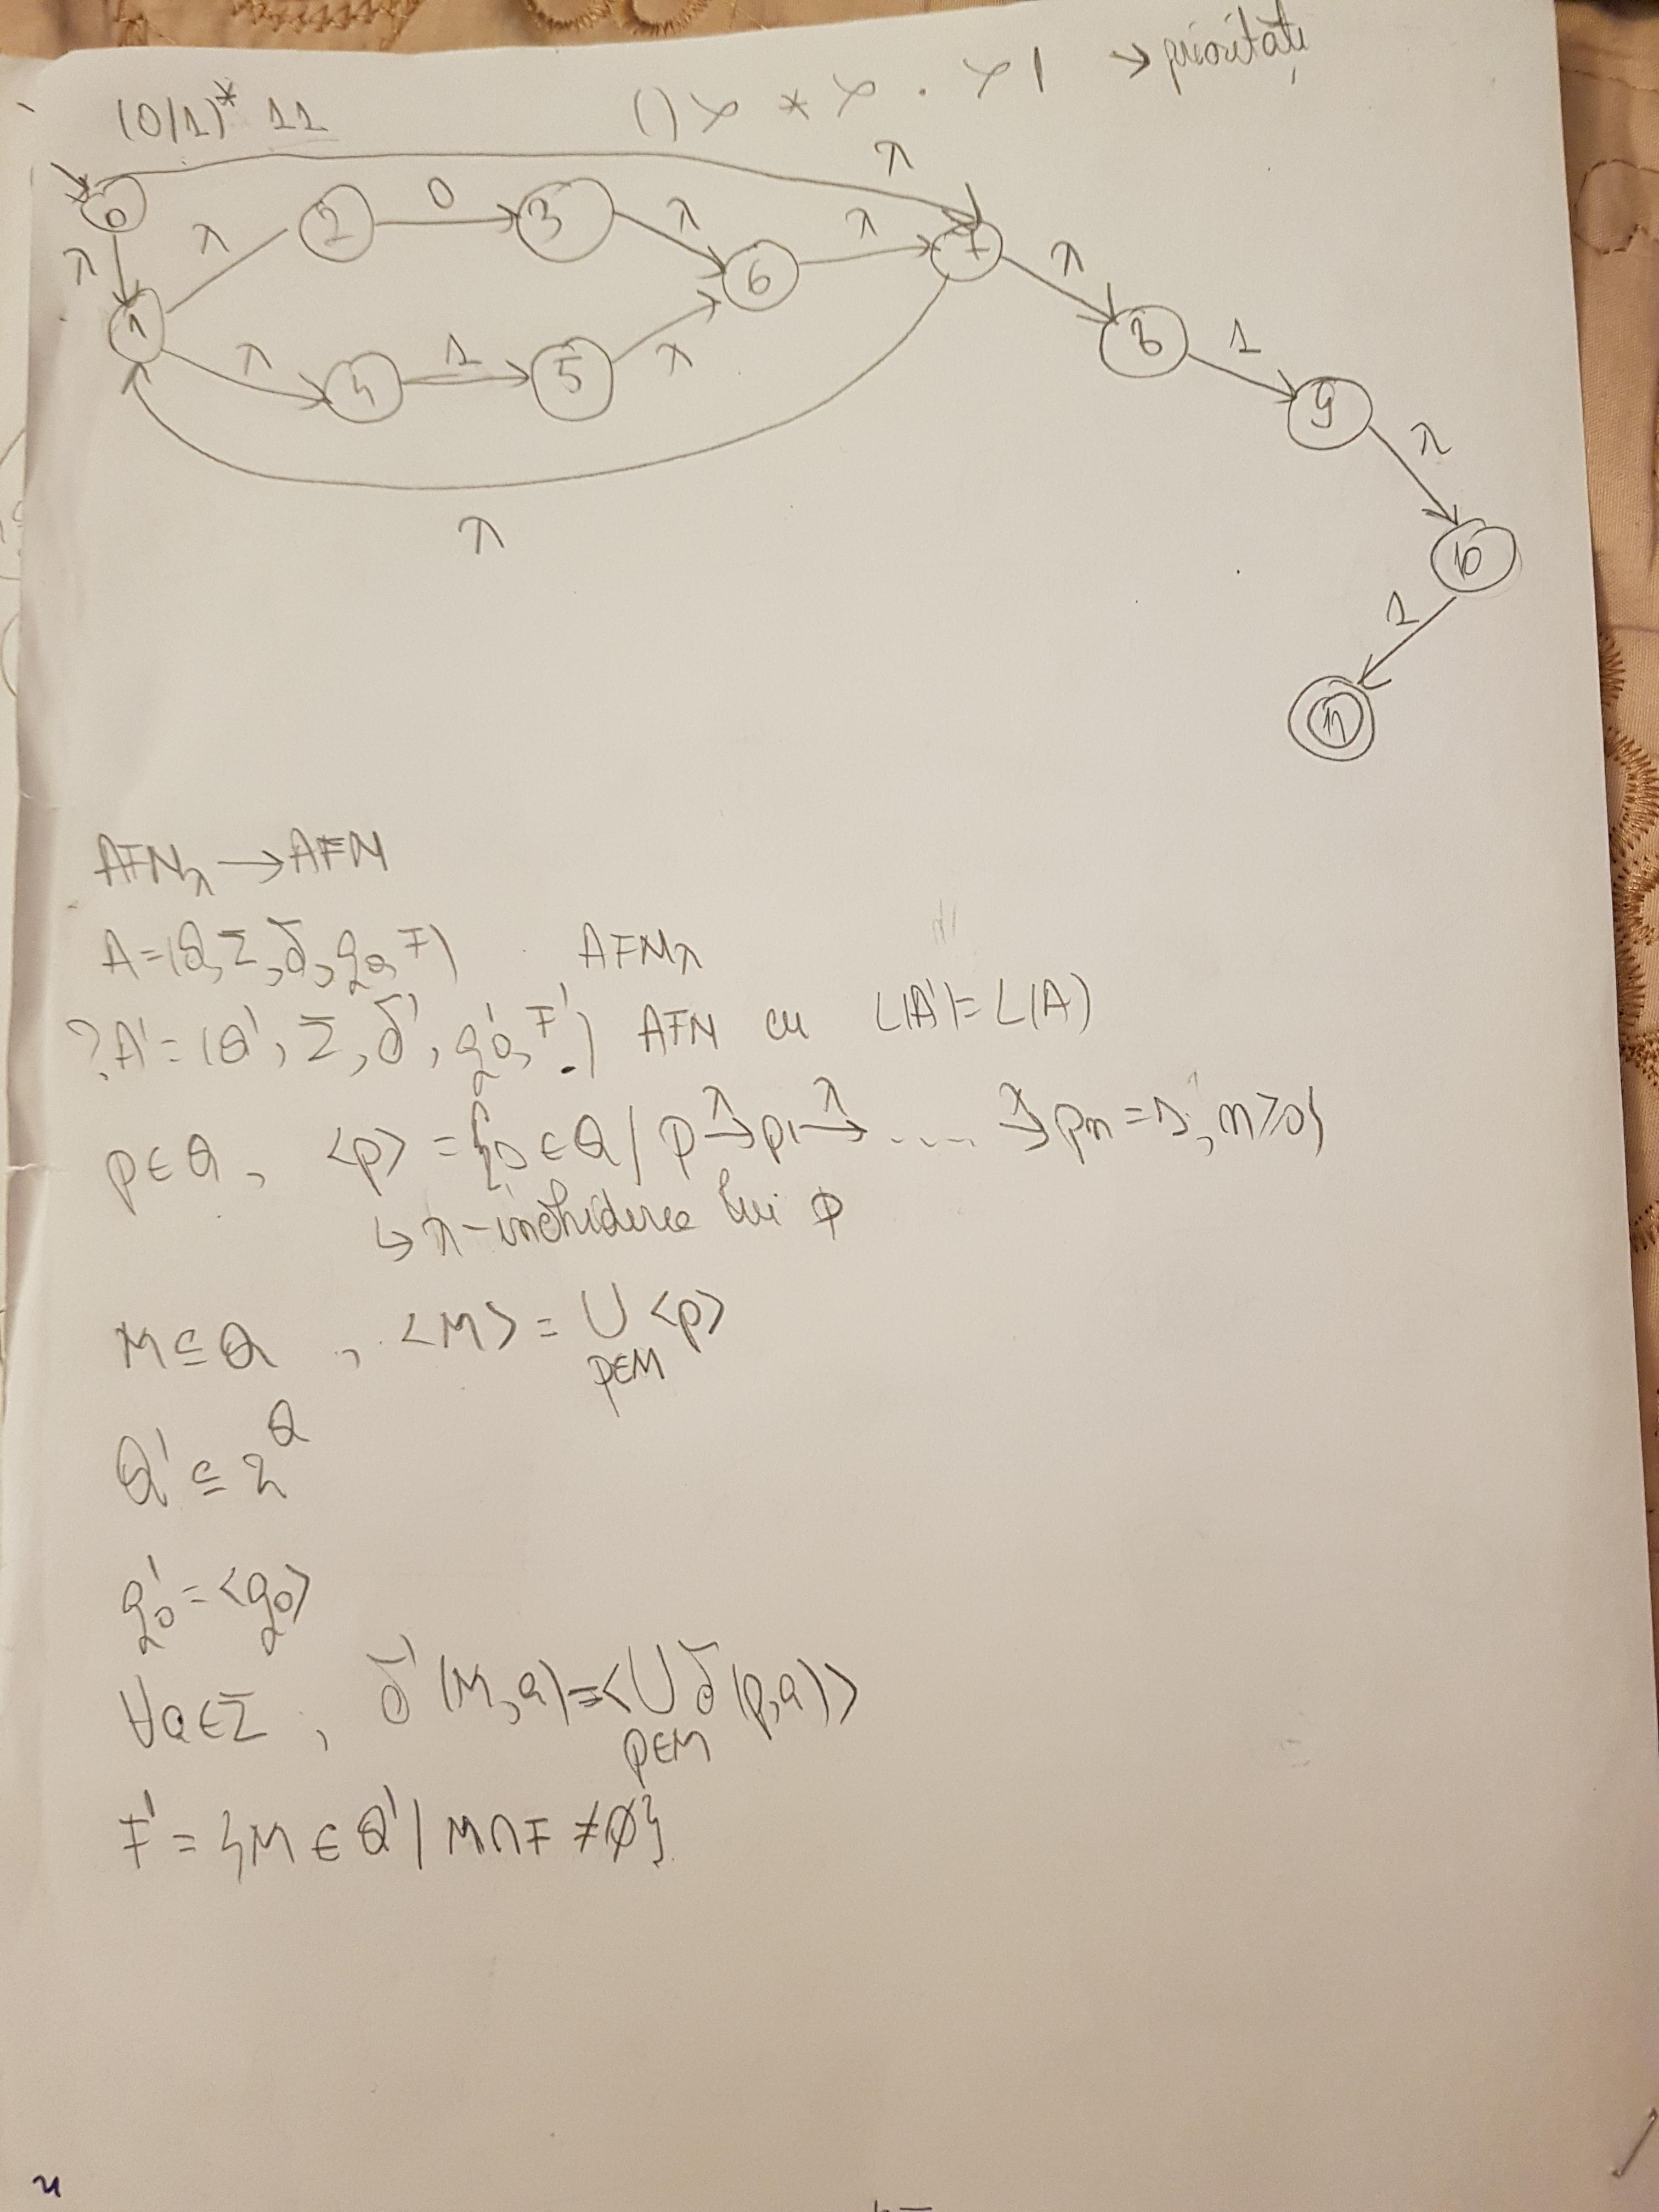 (0/1)* 11
() > * > . > | → priorități
λ
0 λ 2 0 3 λ λ 7
λ 6 λ
1 λ 4 1 5 λ 8 1
9 λ
λ 10
1
11
AFNλ → AFN
A=(Q,Σ,δ,q0,F) AFNλ
?A'=(Q',Σ,δ',q0',F') AFN cu L(A')=L(A)
p∈Q, <p> = {s∈Q / p →λ p1 →λ .... →λ pn = s, n≥0}
↳ λ-închiderea lui p
M⊆Q , <M> = ∪ <p>
p∈M
Q' ⊆ 2^Q
q0' = <q0>
∀a∈Σ , δ'(M,a)=<∪ δ(p,a)>
p∈M
F' = {M ∈ Q' / M∩F ≠∅}